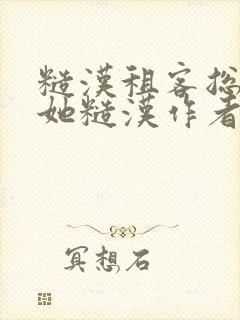 糙漢租客總
她糙漢作者
冥想石